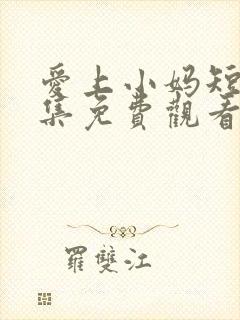 愛上小妈短
集免費觀看
羅雙江